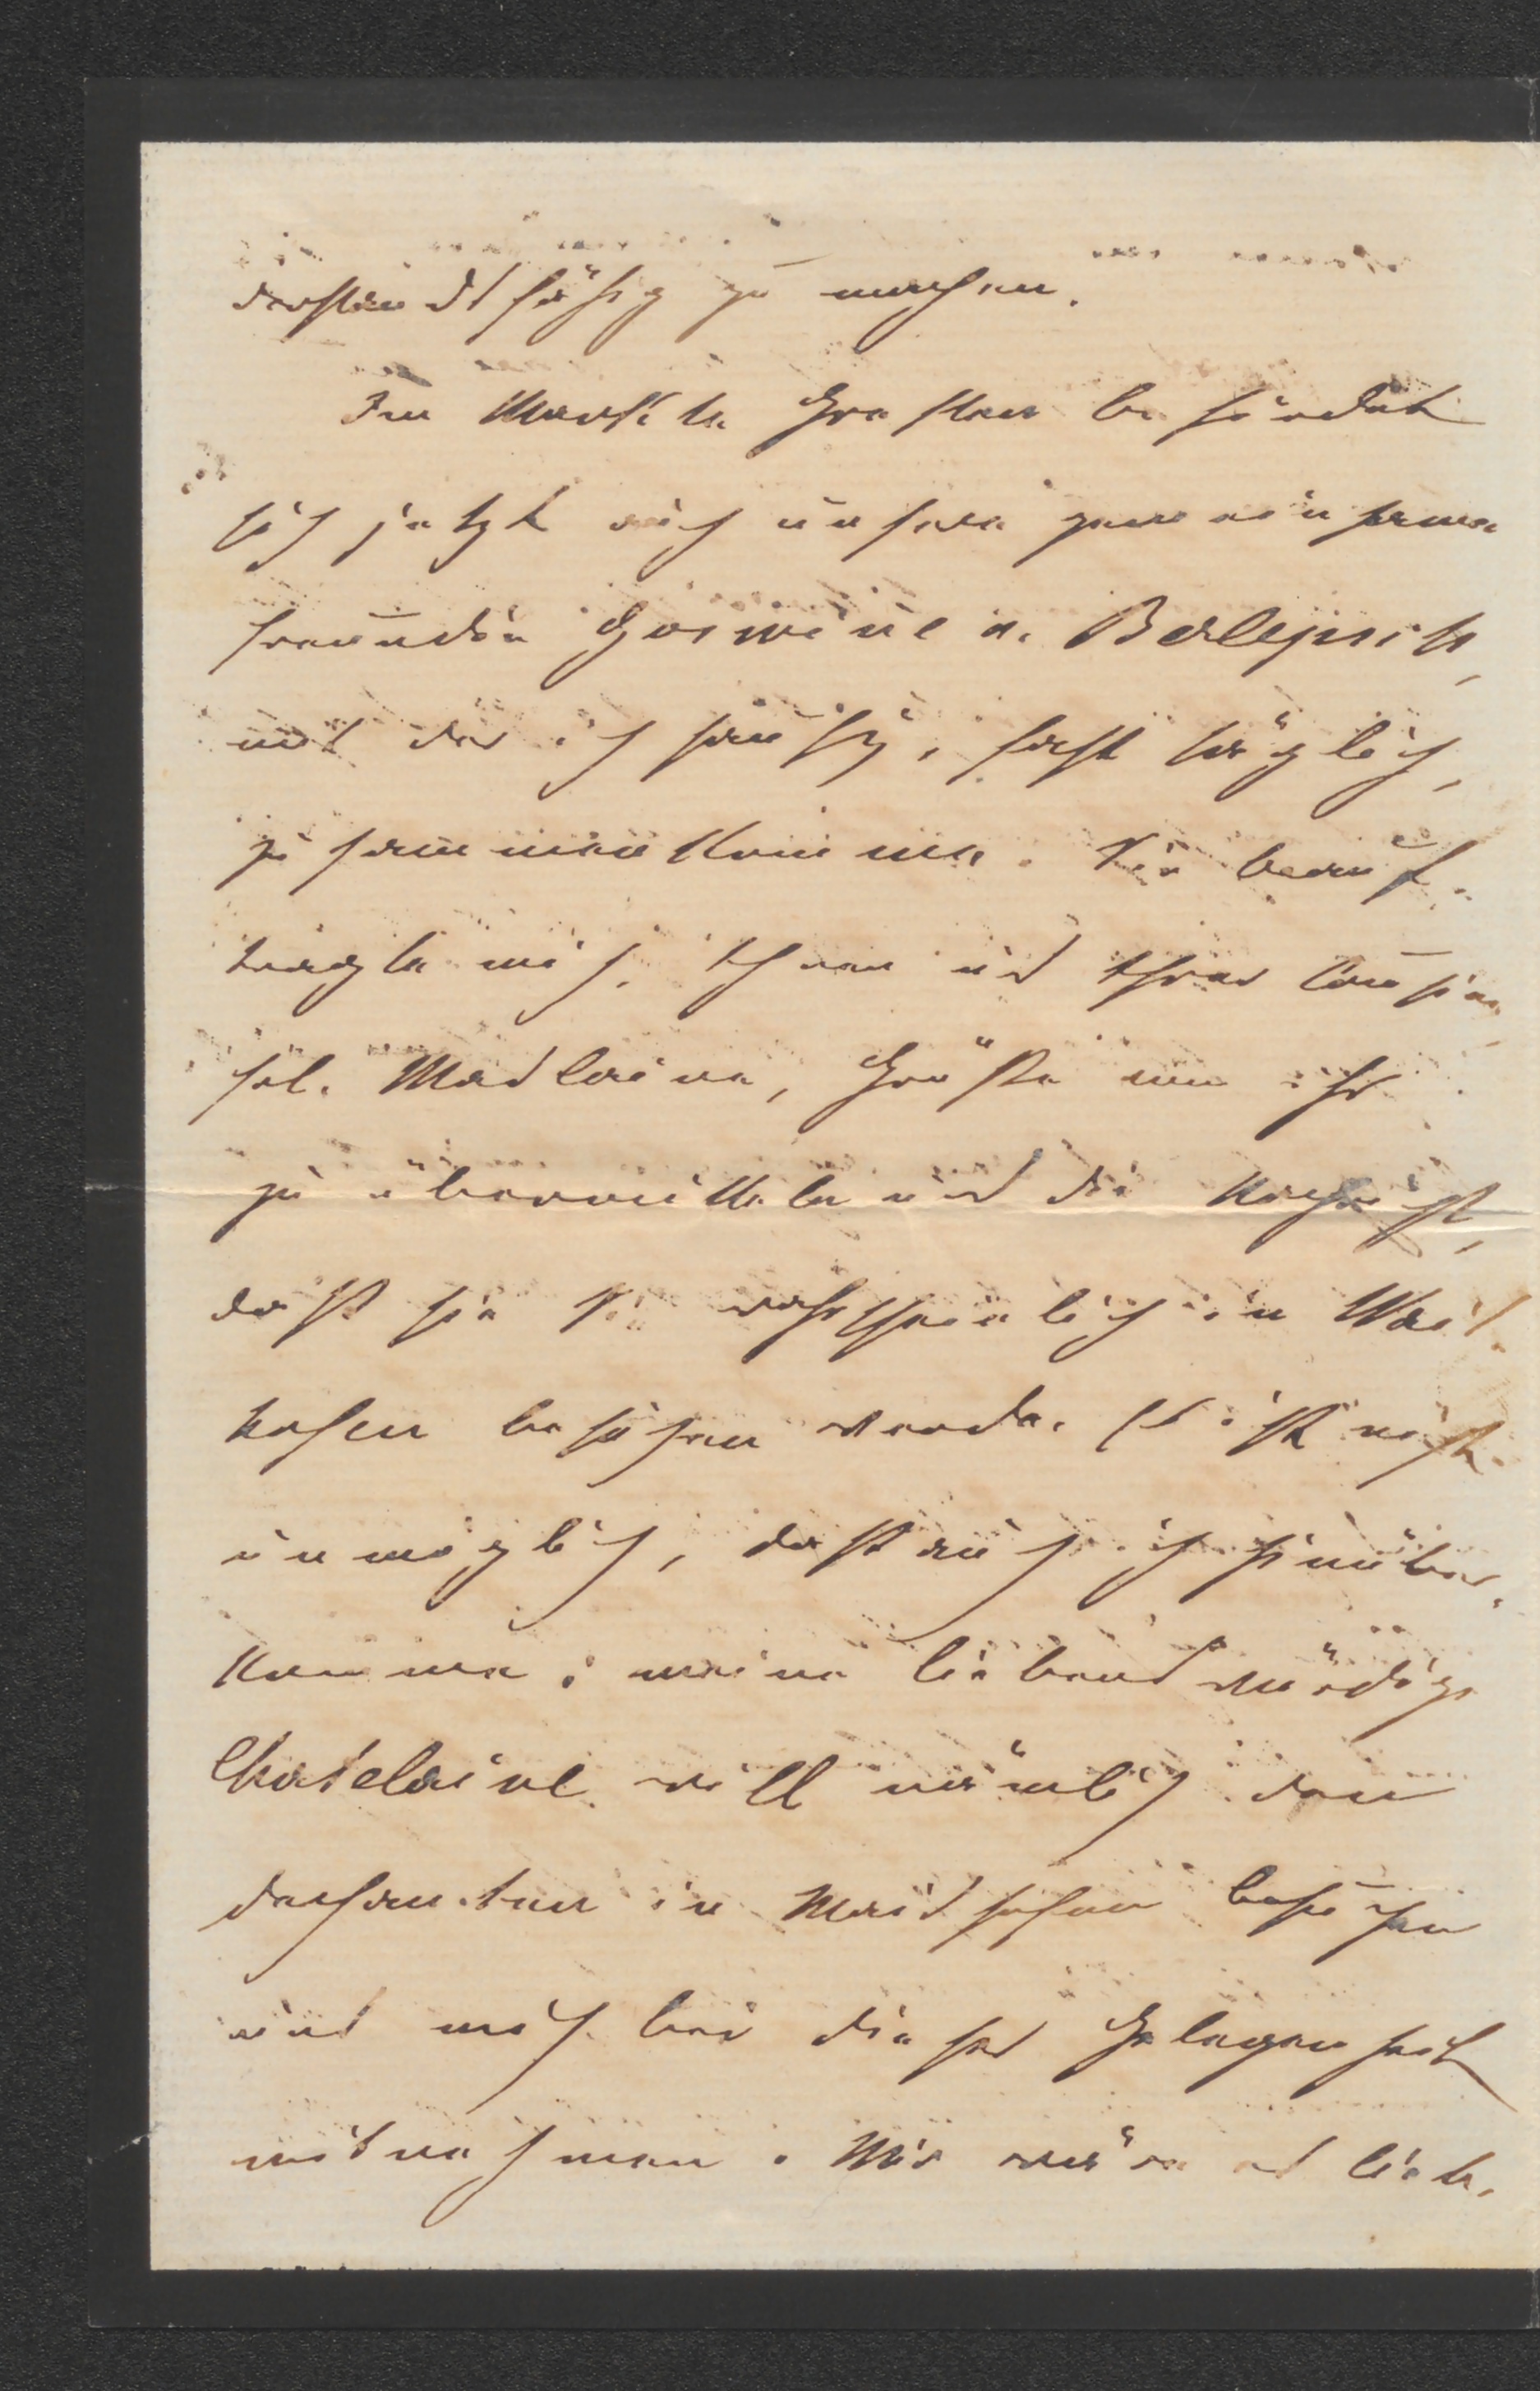 standsfähig zu machen.
Im Markte Graften befindet
sich jetzt auch unsere gemeinsame
Freundin Goswine v. Berlepsch,
mit der ich häufig, fast täglich,
zusammenkomme. Sie beauf-
tragte mich, Ihnen und Ihrer Cousine,
frl. Madlaine, Grüße von ihr
zu übermitteln und die Nachricht,
daß sie Sie wahrscheinlich in Mait-
hofen besuchen werde. Es ist nicht
unmöglich, daß auch ich hinüber-
komme; meine liebenswürdige
Chatelaine will nämlich den
Dechanten in Maidhofen besuchen
und mich bei dieser Gelegenheit
mitnehmen. Mir wäre es lieb,